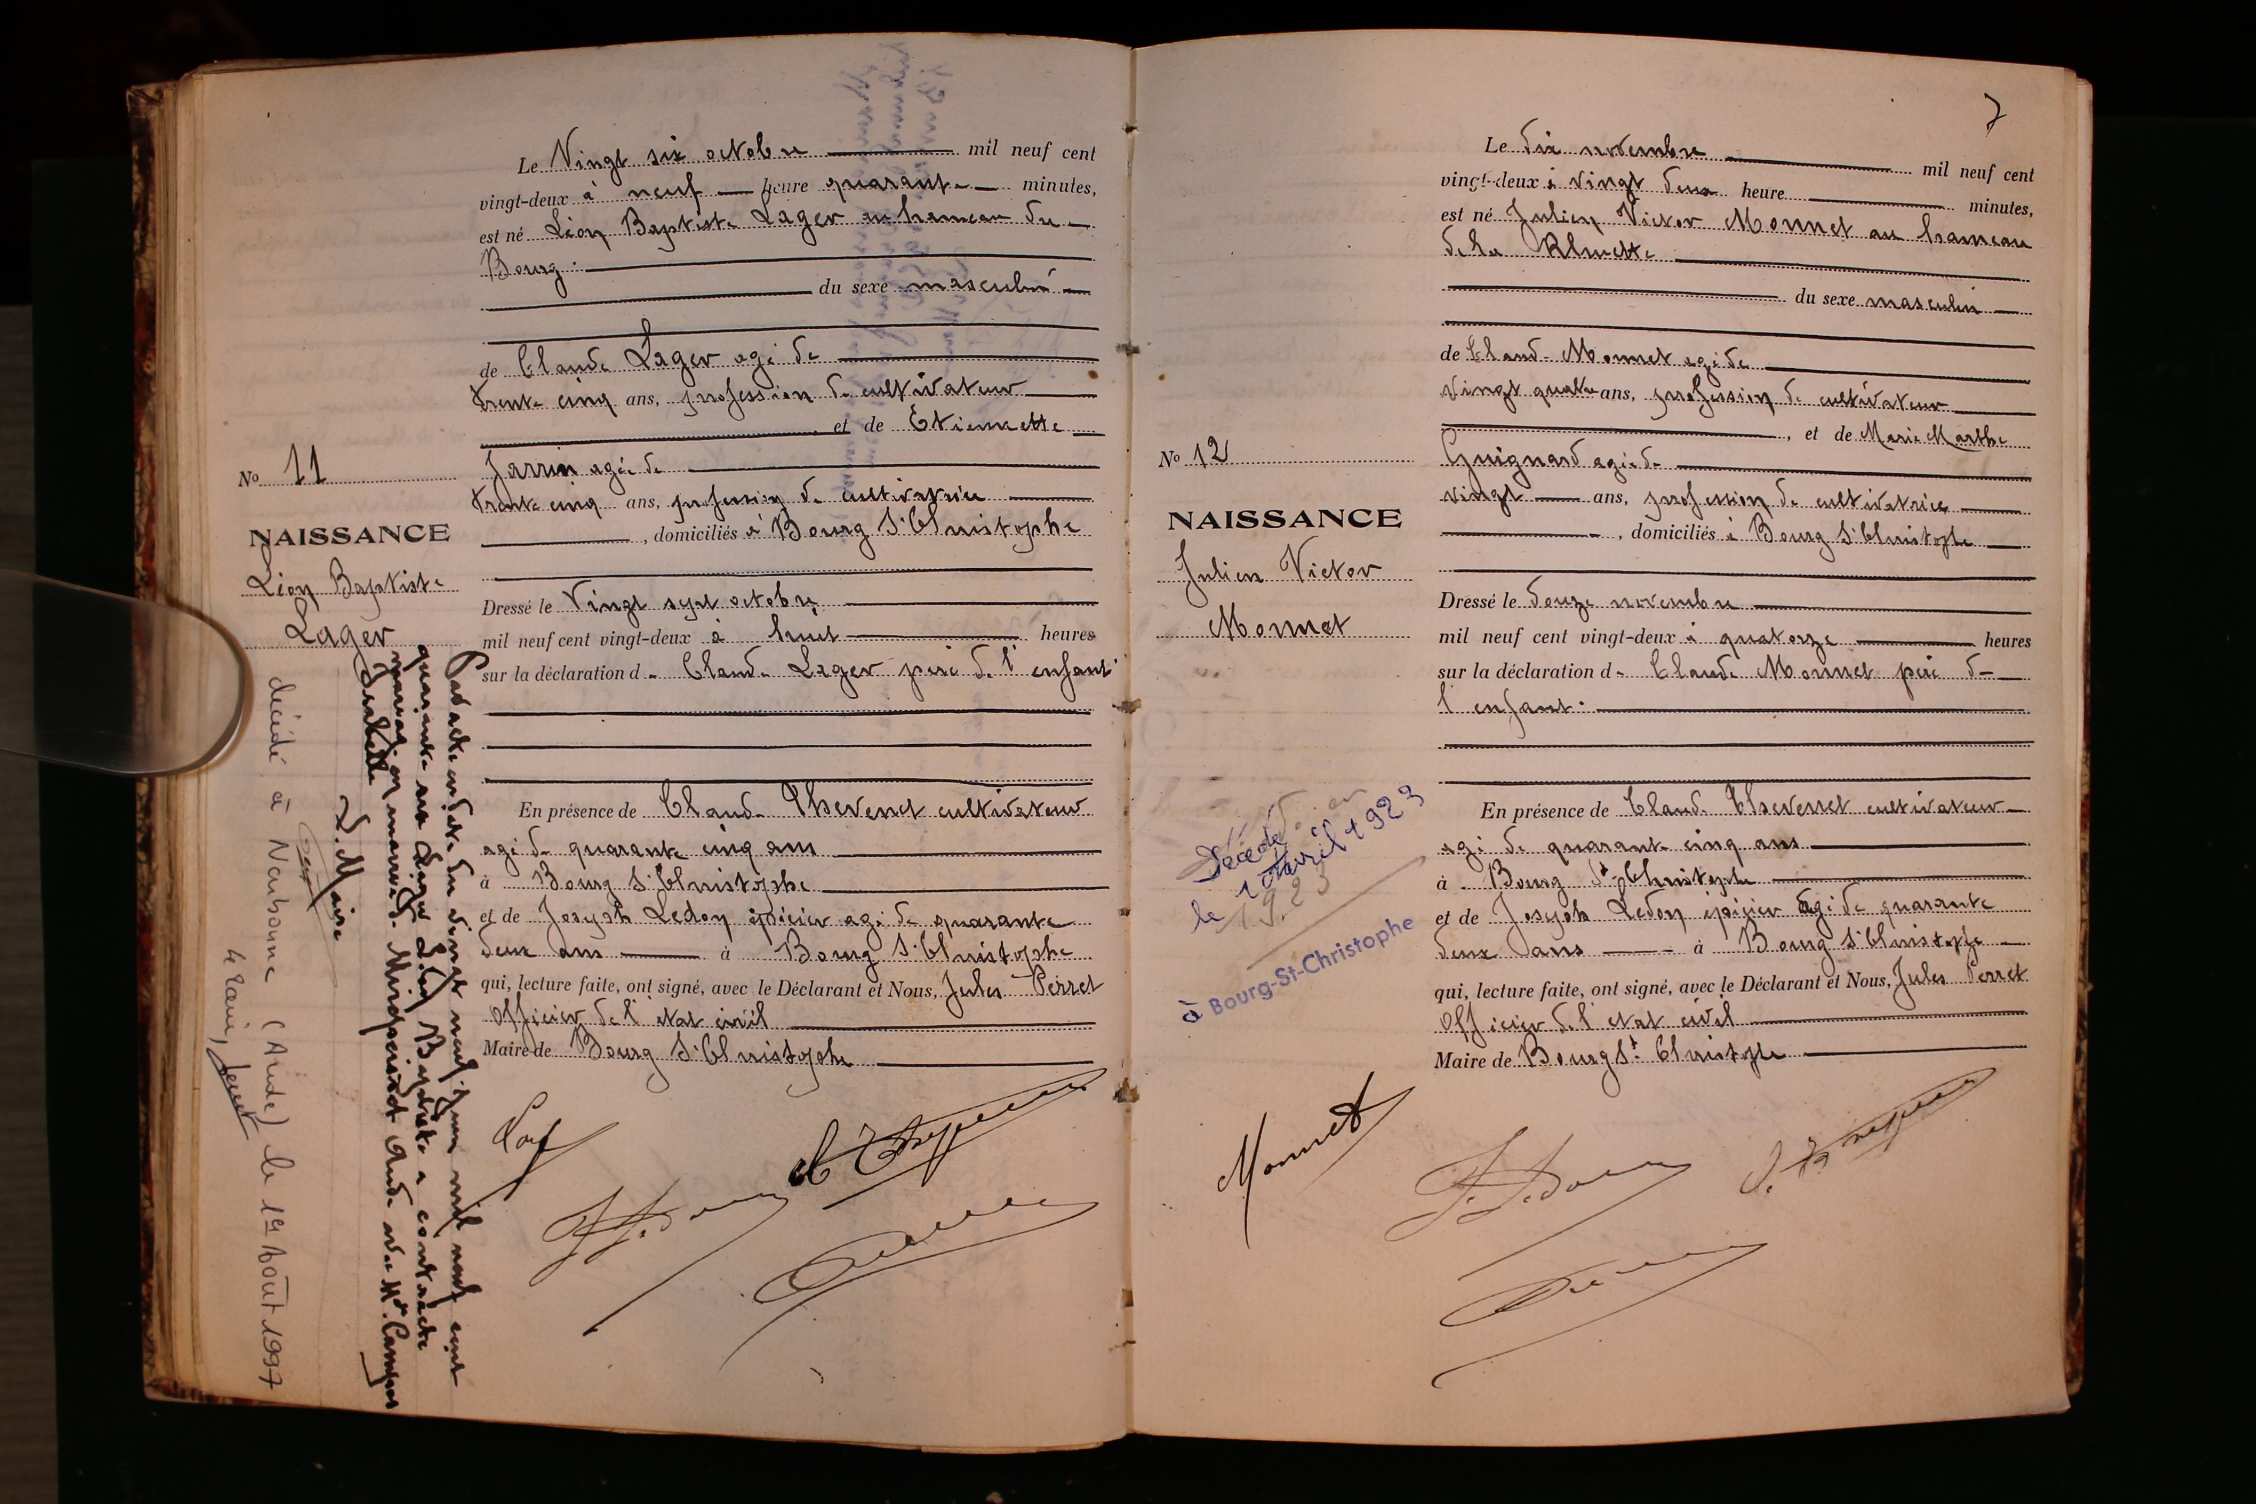 Le Vingt six octobre mil neuf cent
vingt-deux à neuf heure quarante minutes,
est né Léon Baptiste Lager au hameau du
Bourg.
du sexe masculin
de Claude Lager agé de
trente cinq ans, profession de cultivateur
et de Etiennette
Jarrin agée de
trente cinq ans, profession de cultivatrice
, domiciliés à Bourg St Christophe
Dressé le Vingt sept octobre
mil neuf cent vingt-deux à huit heures
sur la déclaration de Claude Lager père de l'enfant
En présence de Claude Thevenet cultivateur
agé de quarante cinq ans
à Bourg St Christophe
et de Joseph Ledon épicier agé de quarante
deux ans à Bourg St Christophe
qui, lecture faite, ont signé, avec le Déclarant et Nous, Jules Perret
Officier de l'état civil
Maire de Bourg St Christophe
No 11
NAISSANCE
Léon Baptiste
Lager
Par acte en date du vingt neuf juin mil neuf cent
quarante six Lager Léon Baptiste a contracté
mariage en mairie de Mirepeisset Aude avec Mlle Campos
L. Maire
décédé à Narbonne (Aude) le 1er Août 1997
7
Le dix novembre mil neuf cent
vingt-deux à vingt deux heure minutes,
est né Julien Victor Monnet au hameau
de la
du sexe masculin
de Claude Monnet agé de
vingt quatre ans, profession de cultivateur
, et de Marie Marthe
Guignard agée de
vingt ans, profession de cultivatrice
, domiciliés à Bourg St Christophe
Dressé le douze novembre
mil neuf cent vingt-deux à quatorze heures
sur la déclaration de Claude Monnet père de
l'enfant.
En présence de Claude Thevenet cultivateur
agé de quarante cinq ans
à Bourg St Christophe
et de Joseph Ledon épicier agé de quarante
deux ans à Bourg St Christophe
qui, lecture faite, ont signé, avec le Déclarant et Nous, Jules Perret
Officier de l'état civil
Maire de Bourg St. Christophe
Monnet
No 12
NAISSANCE
Julien Victor
Monnet
Décédé
le 10 avril 1923
à Bourg-St-Christophe